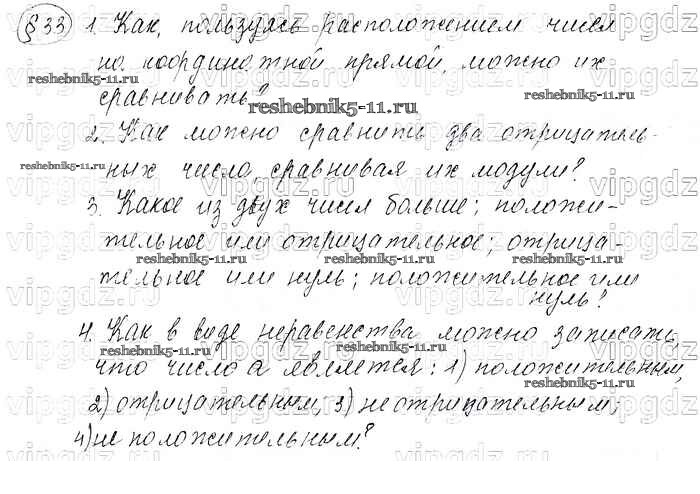 § 33 1. Как, пользуясь расположением чисел
на координатной прямой, можно их
reshebnik5-11.ru reshebnik5-11.ru
сравнивать?
reshebnik5-11.ru
2. Как можно сравнить два отрицатель-
reshebnik5-11.ru
ных число, сравнивая их модули?
3. Какое из двух чисел больше; положи-
тельное или отрицательное; отрица-
reshebnik5-11.ru reshebnik5-11.ru
тельное или нуль; положительное или
нуль?
4. Как в виде неравенства можно записать,
reshebnik5-11.ru reshebnik5-11.ru
что число а является: 1) положительным,
reshebnik5-11.ru
2) отрицательным; 3) неотрицательным;
4) не положительным?
vipgdz.ru